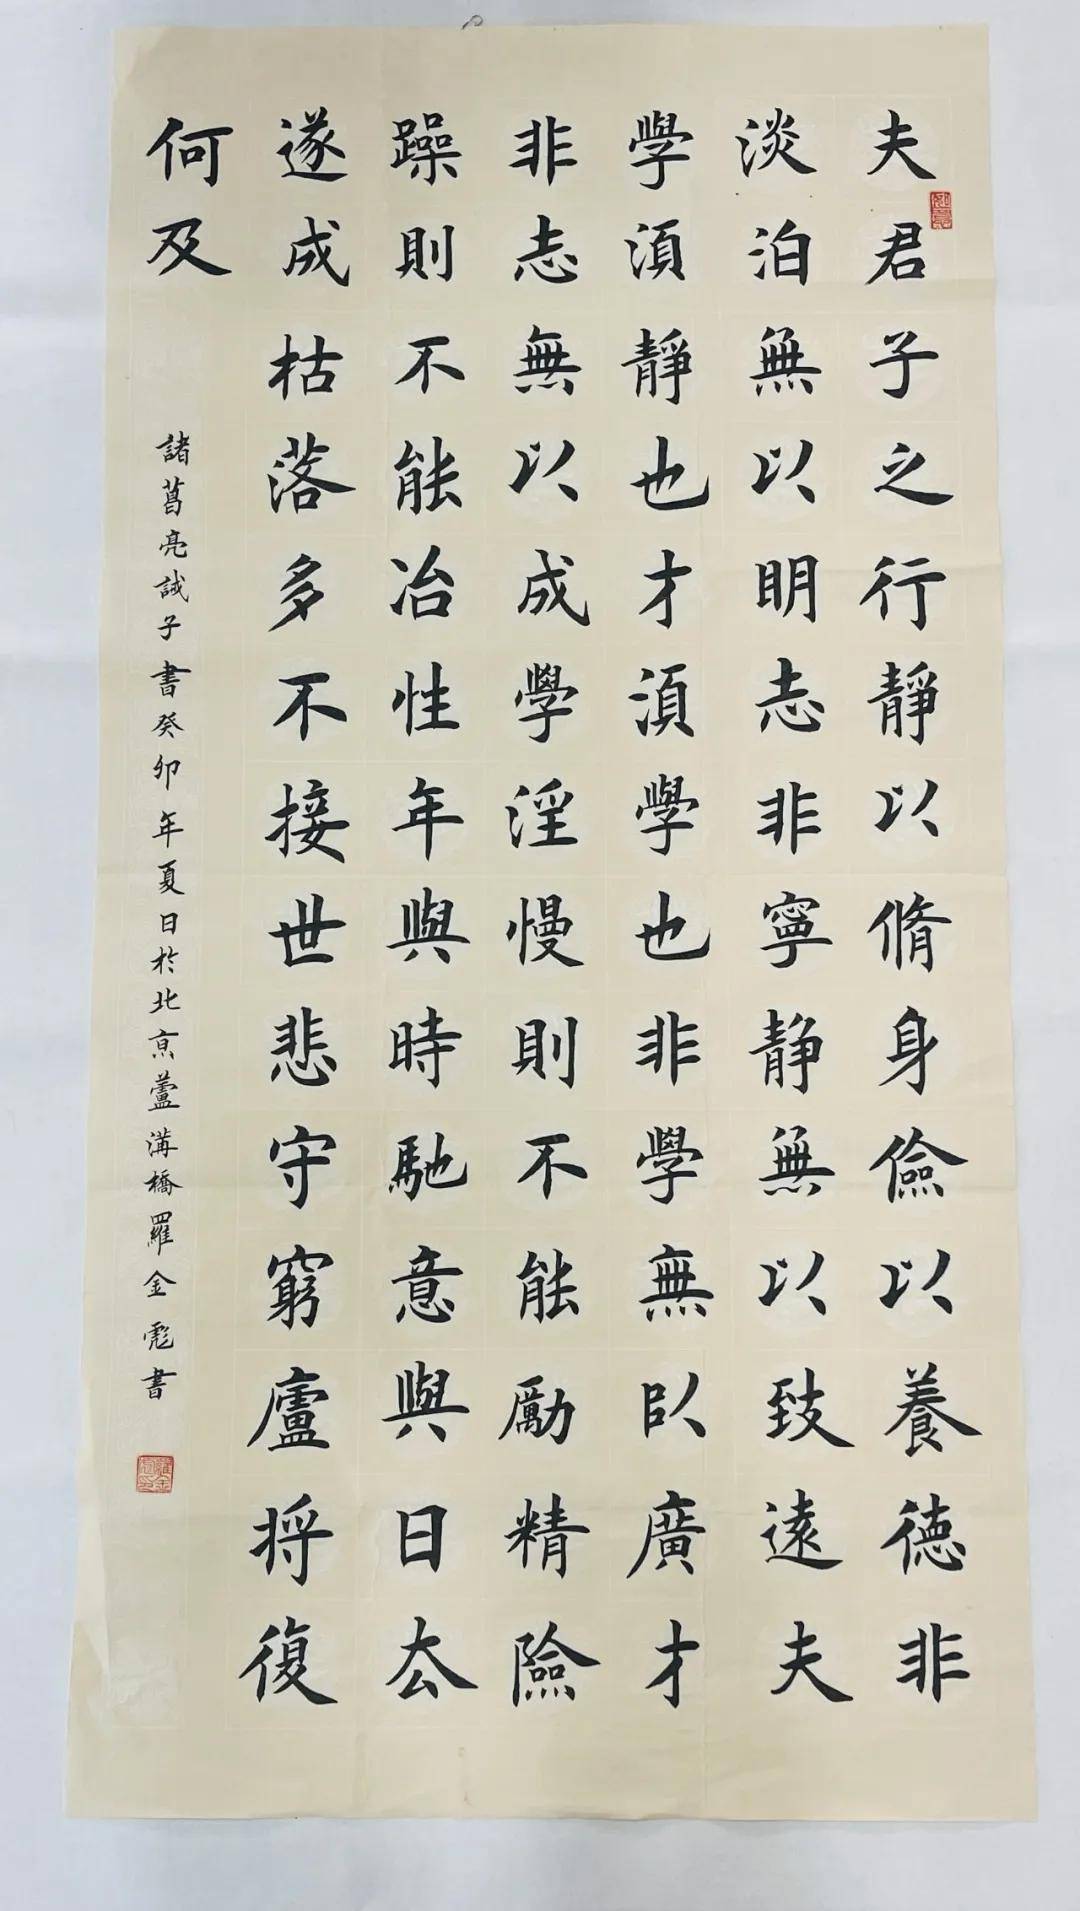 夫君子之行靜以脩身儉以養德非
淡泊無以明志非寧静無以致遠夫
學湏靜也才湏學也非學無以廣才
非志無以成學淫慢則不能勵精險
躁則不能冶性年與時馳意與日去
遂成枯落多不接世悲守窮廬将復
何及
諸葛亮誡子書癸卯年夏日於北京蘆溝橋羅金彪書